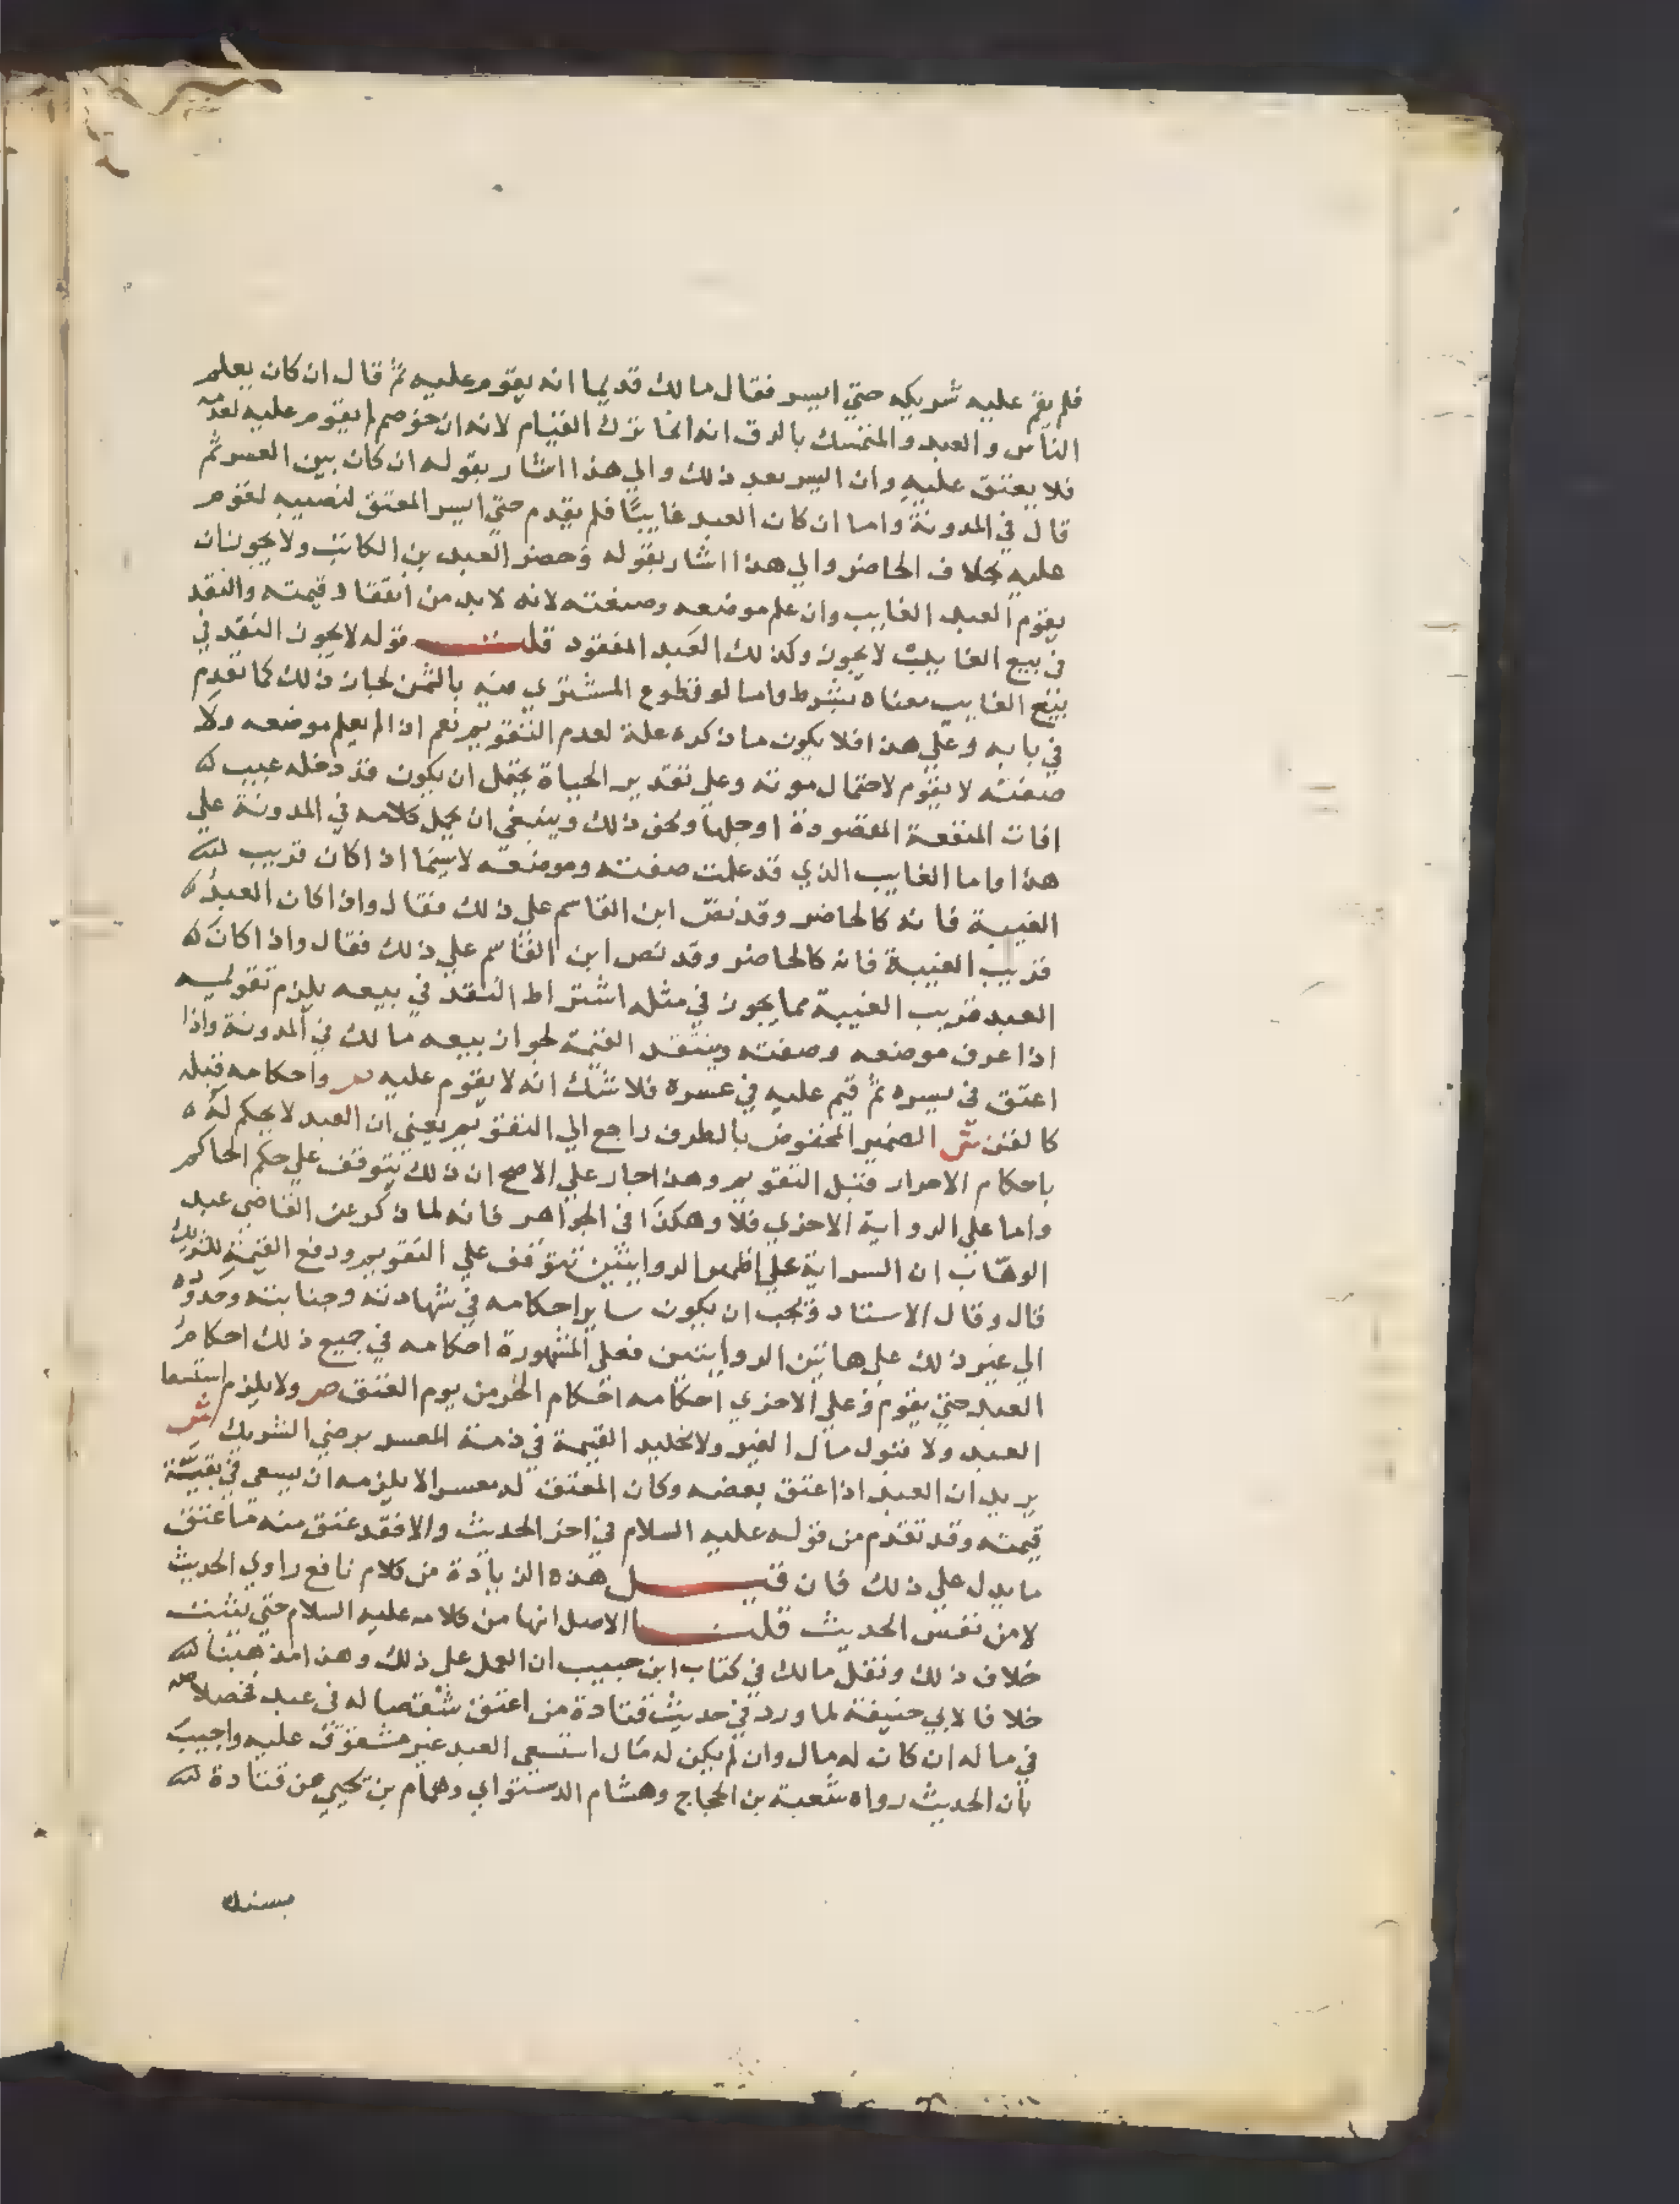 فلم يقم عليه شريكه حتي ايسر فقال مالك قديما انه يقوم عليه ثم قال ان كان يعلم
الناس والعبد والمتمسك بالرق انه انما ترك القيام لانه ان خوصم لم يقوم عليه لعدمه
فلا يعتق عليه وان ايسر بعد ذلك والي هذا اشار بقوله ان كان بين العسر ثم
قال في المدونة واما ان كان العبد غايبًا فلم يقدم حتي ايسر المعتق لنصيبه لقوم
عليه بخلاف الحاضر والي هذا اشار بقوله وحضر العبد بن الكاتب ولا يجوز ان
يقوم العبد الغايب وان علم موضعه وصفته لانه لا بد من انتقاد قيمته والنقد
في بيع الغايب لا يجوز وكذلك العبد المفقود قلت قوله لا يجوز النقد في
بيع الغايب معناه بشرط واما لو تطوع المشتري منه بالثمن لجاز ذلك كما تقدم
في بابه وعلي هذا فلا يكون ما ذكره علة لعدم التقويم نعم اذا لم يعلم موضعه ولا
صفته لا يقوم لاحتمال موته وعلي تقدير الحياة يحتمل ان يكون قد دخله عيب
افات المنفعة المقصودة او جلها ونحو ذلك وينبغي ان يحمل كلامه في المدونة علي
هذا واما الغايب الذي قد علمت صفته وموضعه لاسيما اذا كان قريب
الغيبة فانه كالحاضر وقد نص ابن القاسم علي ذلك فقال واذا كان العبد
قريب الغيبة فانه كالحاضر وقد نص ابن القاسم علي ذلك فقال واذا كان
العبد قريب الغيبة مما يجوز في مثله اشتراط النقد في بيعه يلزم تقويمه
اذا عرف موضعه وصفته وينتقد القيمة لجواز بيعه مالك في المدونة واذا
اعتق في يسره ثم قيم عليه في عسره فلا شك انه لا يقوم عليه ص واحكامه قبله
كالقن ش الضمير المخفوض بالظرف راجع الي التقويم يعني ان العبد لا يحكم له
باحكام الاحرار قبل التقويم وهذا جار علي الاصح ان ذلك يتوقف علي حكم الحاكم
واما علي الرواية الاخري فلا وهكذا في الجواهر فانه لما ذكر عن القاضي عبد
الوهاب ان السراية علي اظهر الروايتين تتوقف علي التقويم ودفع القيمة للشريك
قال وقال الاستاد وتجب ان يكون ساير احكامه في شهادته وجنايته وحدوده
الي غير ذلك علي هاتين الروايتين فعلي المشهورة احكامه في جميع ذلك احكام
العبد حتي يقوم وعلي الاخري احكامه احكام الحر من يوم العتق ص ولا يلزم استسعا
العبد ولا قبول مال الغير ولا تخليد القيمة في ذمة المعسر برضي الشريك ش
يريد ان العبد اذا عتق بعضه وكان المعتق له معسرا لا يلزمه ان يسعي في بقية
قيمته وقد تقدم من قوله عليه السلام في اخر الحديث والا فقد عتق منه ما عتق
ما يدل علي ذلك فان قيل هذه الزيادة من كلام نافع راوي الحديث
لا من نفس الحديث قلنا الاصل انها من كلامه عليه السلام حتي يثبت
خلاف ذلك ونقل مالك في كتاب ابن حبيب ان العمل علي ذلك وهذا مذهبنا
خلافا لابي حنيفة لما ورد في حديث قتادة من اعتق شقصا له في عبد فخصلاصه
في ماله ان كان له مال وان لم يكن له مال استسعي العبد غير مشقوق عليه واجيب
بان الحديث رواه شعبة بن الحجاج وهشام الدستواي وهمام بن يحيي عن قتادة
بسنده